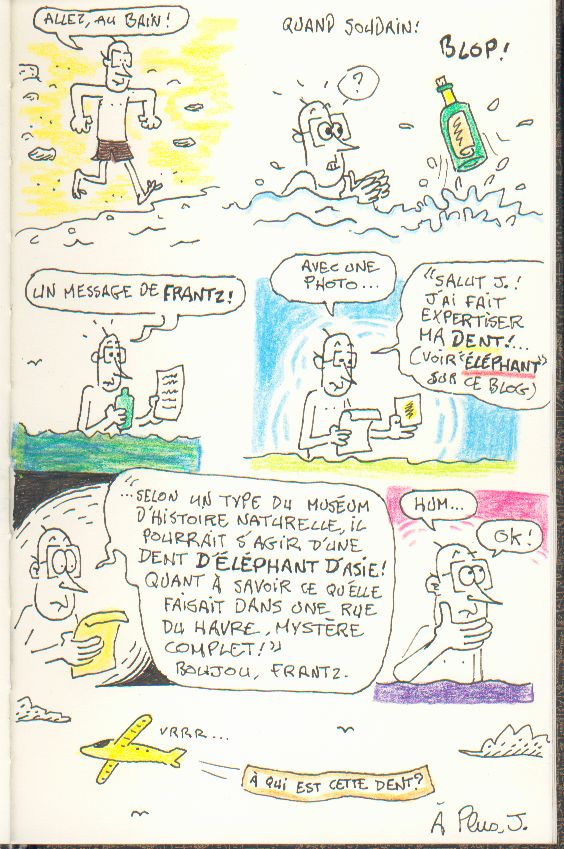 ALLEZ, AU BAIN!
QUAND SOUDAIN!
BLOP!
?
UN MESSAGE DE FRANTZ!
AVEC UNE
PHOTO...
"SALUT J.!
J'AI FAIT
EXPERTISER
MA DENT!...
(VOIR "ÉLÉPHANT"
SUR CE BLOG)
"...SELON UN TYPE DU MUSÉUM
D'HISTOIRE NATURELLE, IL
POURRAIT S'AGIR D'UNE
DENT D'ÉLÉPHANT D'ASIE!
QUANT À SAVOIR CE QU'ELLE
FAISAIT DANS UNE RUE
DU HAVRE, MYSTÈRE
COMPLET!"
BOUJOU, FRANTZ.
HUM...
OK!
VRRR...
À QUI EST CETTE DENT?
À Plus, J.